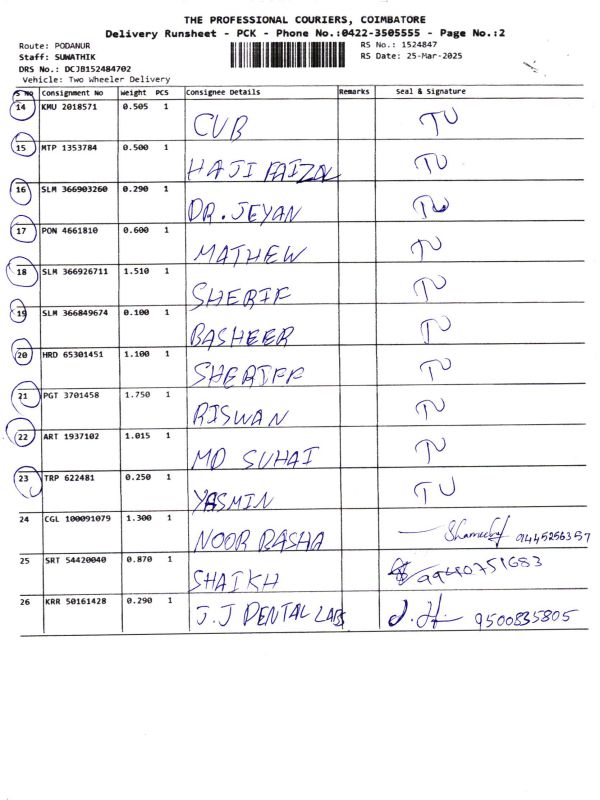 THE PROFESSIONAL COURIERS, COIMBATORE
Delivery Runsheet - PCK - Phone No.:0422-3505555 - Page No.:2
Route: PODANUR RS No.: 1524847
Staff: SUWATHIK RS Date: 25-Mar-2025
DRS No.: DCJB152484702
Vehicle: Two Wheeler Delivery
S No Consignment No Weight PCS Consignee Details Remarks Seal & Signature
14 KMU 2018571 0.505 1 CUB TU
15 MTP 1353784 0.500 1 HAJI FAIZAL TU
16 SLM 366903260 0.290 1 DR. JEYAN TU
17 PON 4661810 0.600 1 MATHEW TU
18 SLM 366926711 1.510 1 SHERIF TU
19 SLM 366849674 0.100 1 BASHEER TU
20 HRD 65301451 1.100 1 SHERIFF TU
21 PGT 3701458 1.750 1 RISWAN TU
22 ART 1937102 1.015 1 MD SUHAI TU
23 TRP 622481 0.250 1 YASMIN TU
24 CGL 100091079 1.300 1 NOOR RASHA 9445256357
25 SRT 54420040 0.870 1 SHAIKH 99440751683
26 KRR 50161428 0.290 1 J.J DENTAL LABS 9500835805